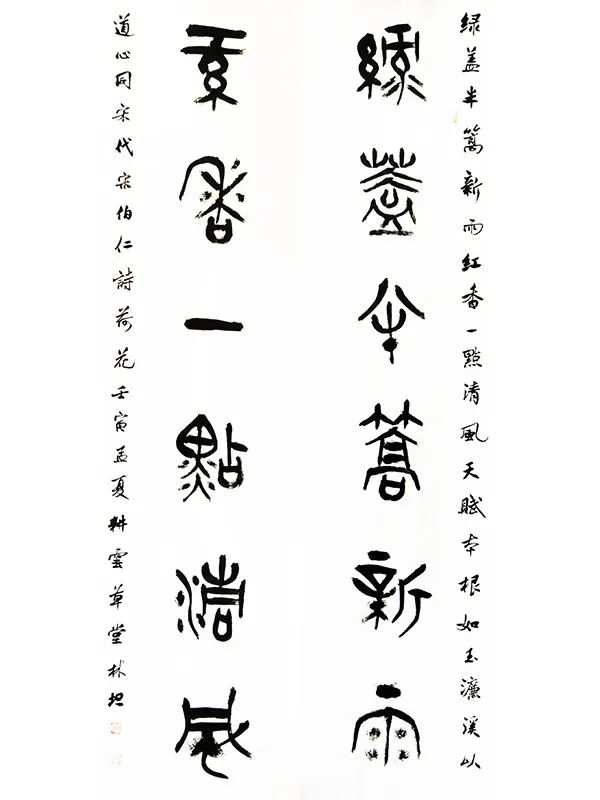 绿盖半篙新雨红香一點清風天賦本根如玉濂溪以
綠蓋半篙新雨
紅香一點清風
道心同宋代宋伯仁詩荷花壬寅孟夏耕雲草堂林坦